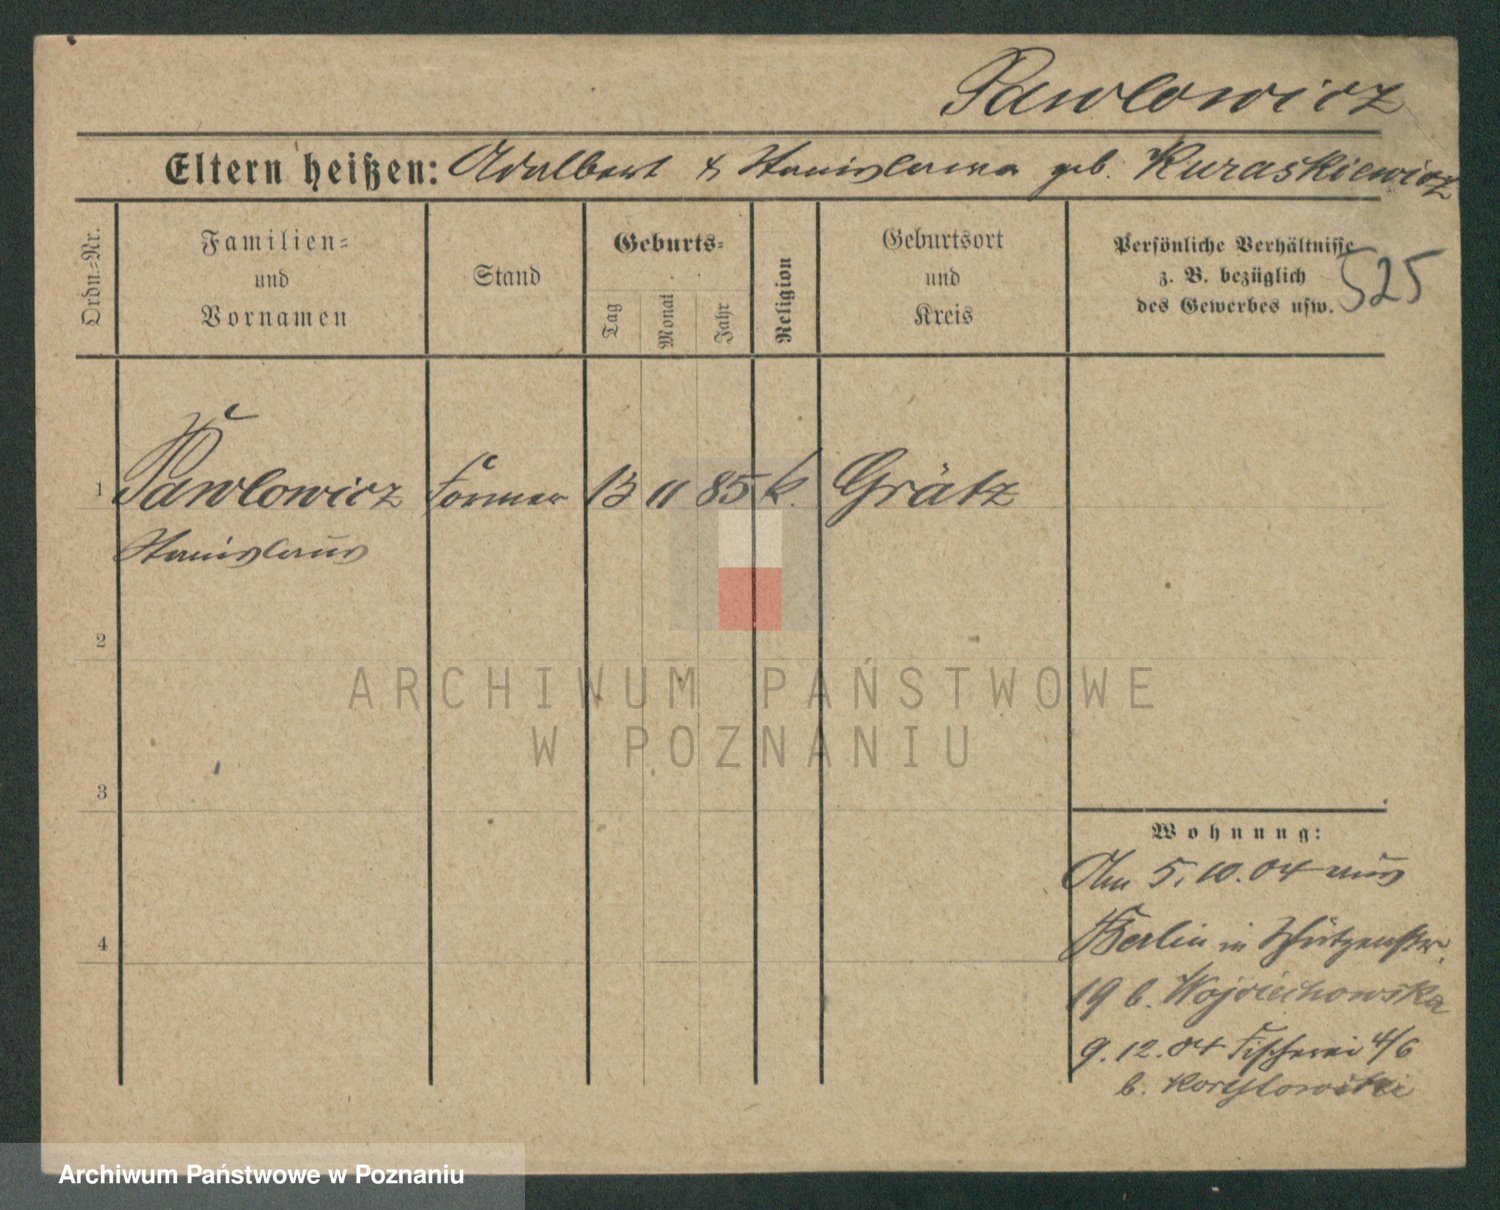 Pawlowicz
Eltern heißen: Adalbert & Stanislawa geb. Kuraskiewicz
Ordn.-Nr.
Familien-
und
Vornamen
Stand
Geburts-
Tag
Monat
Jahr
Religion
Geburtsort
und
Kreis
Persönliche Verhältnisse
z. B. bezüglich
des Gewerbes usw.
525
1 Pawlowicz Former 13 11 85 k. Grätz
Stanislaus
2
ARCHIWUM PAŃSTWOWE
W POZNANIU
3
Wohnung:
Am 5.10.04 aus
4
Berlin in Schützenstr.
19 b. Wojciechowska
9.12.04 Fischerei 4/6
b.
Archiwum Państwowe w Poznaniu